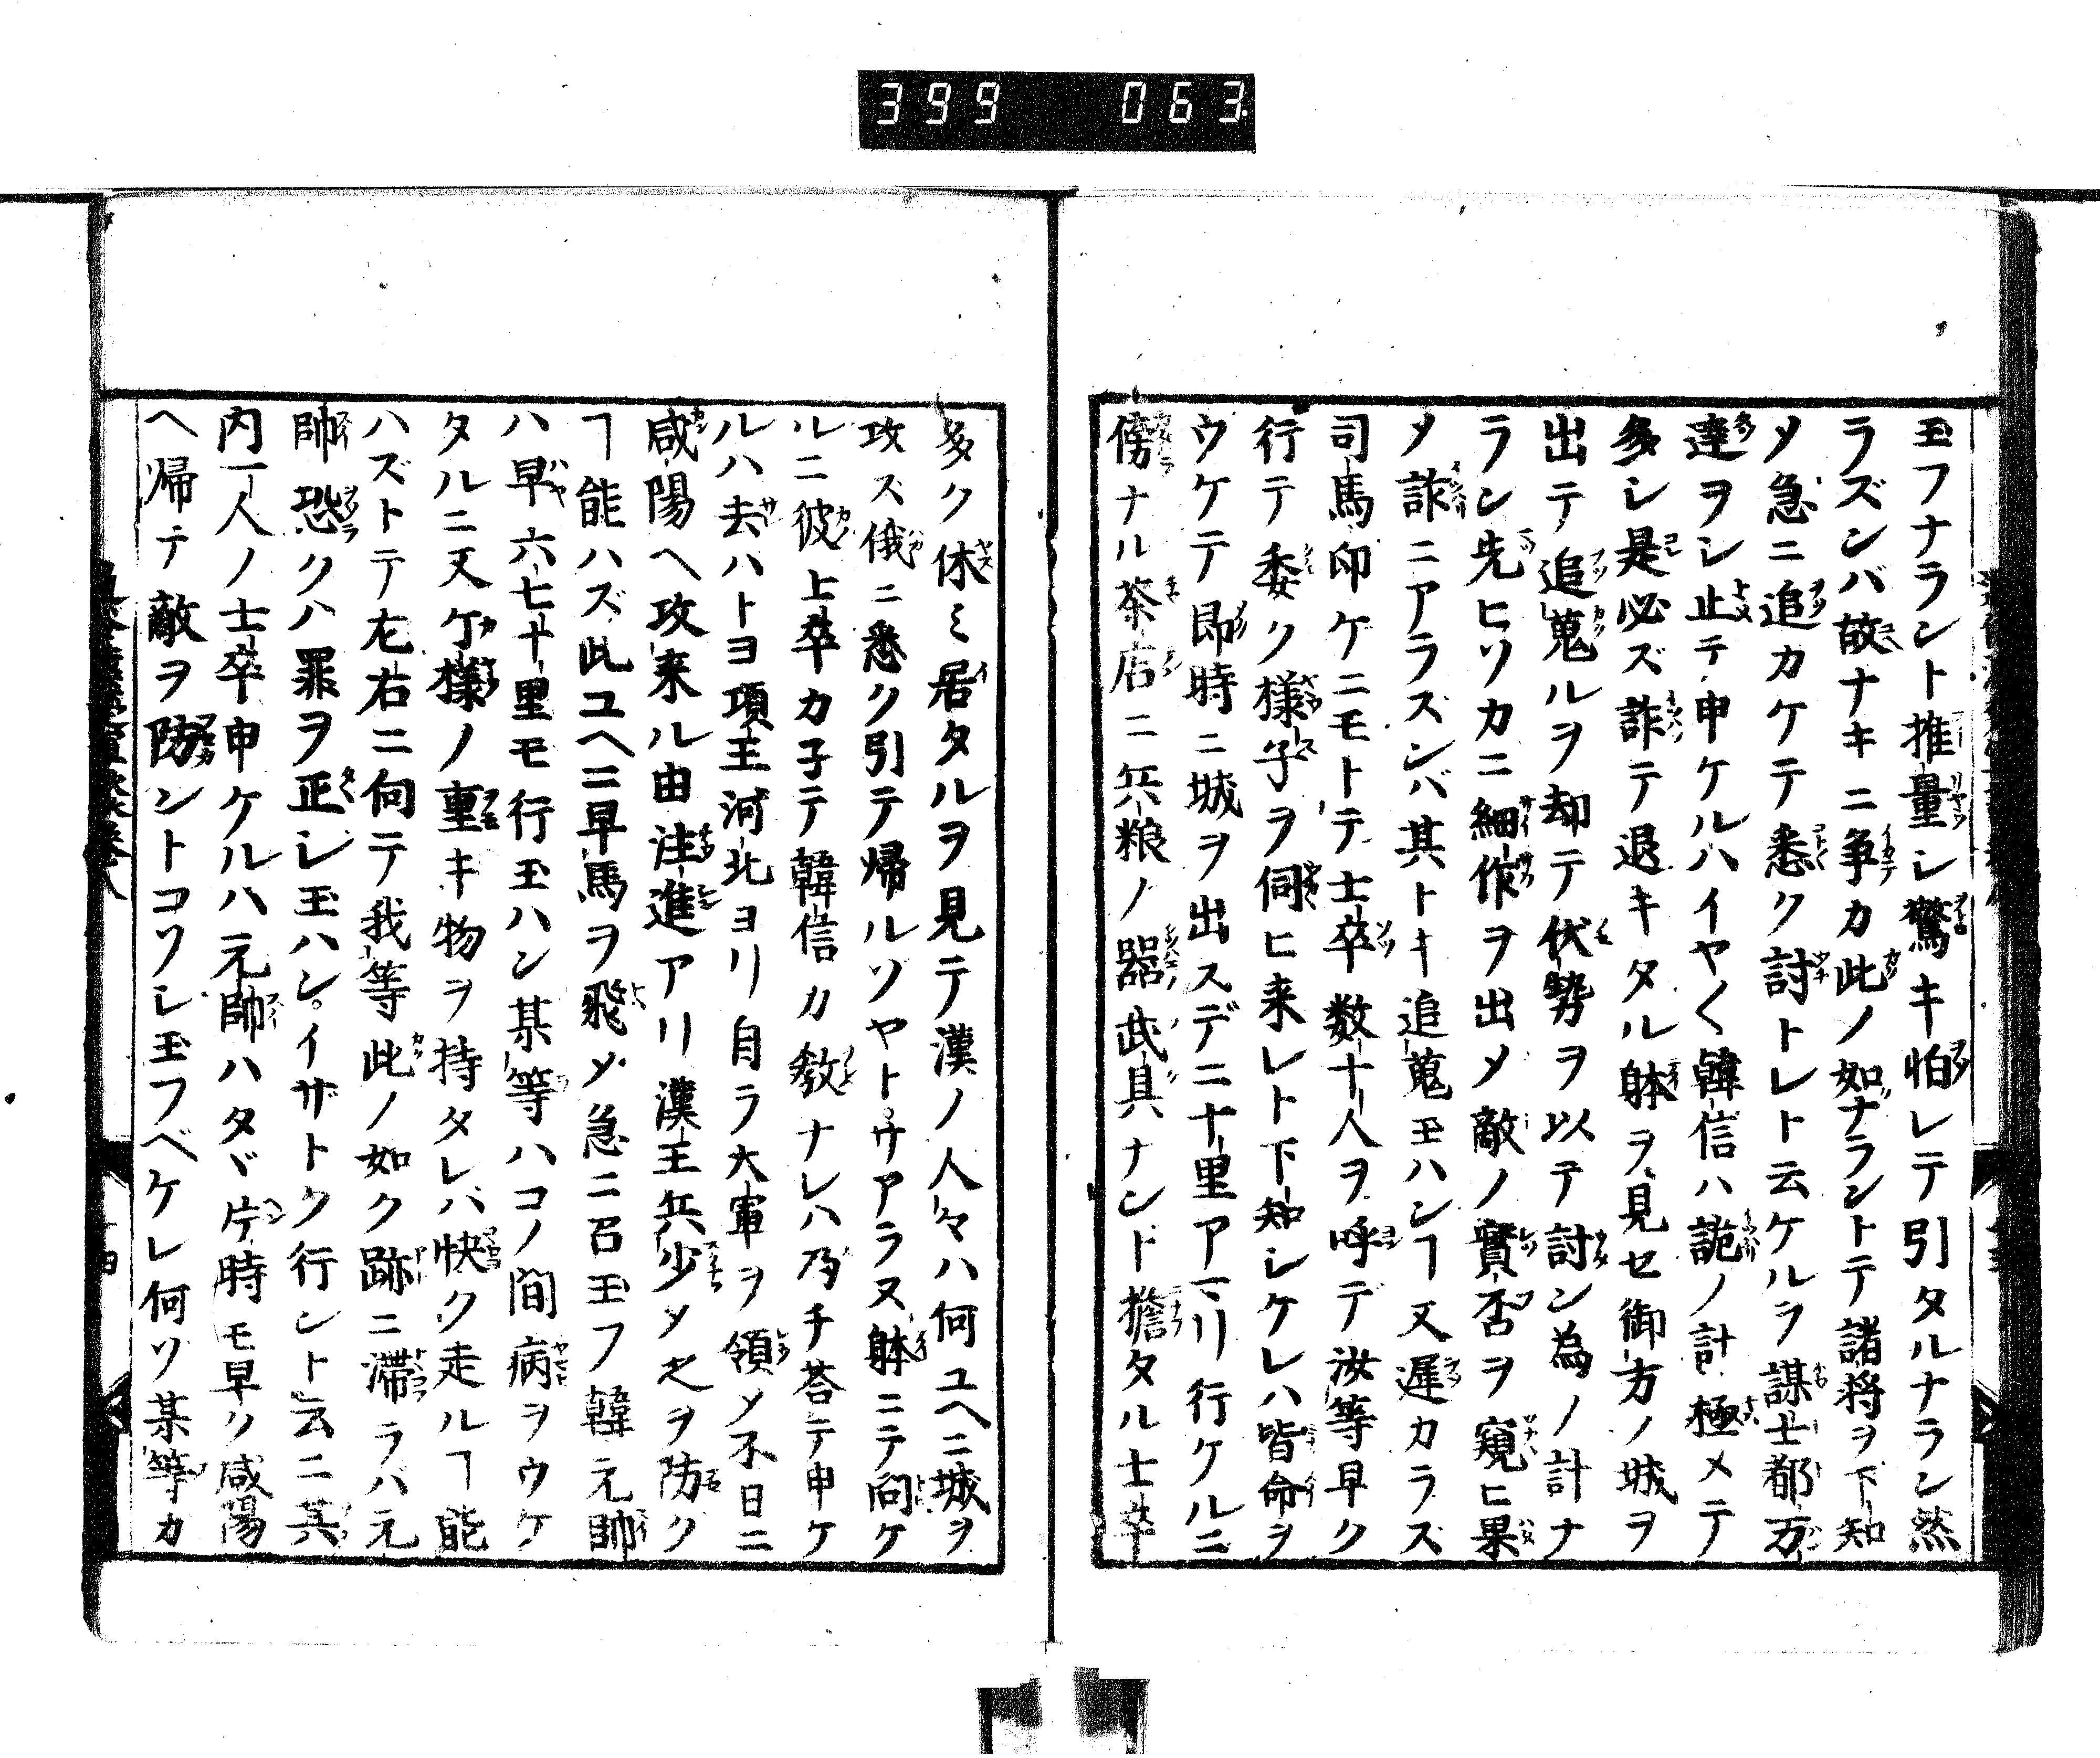 399 063
玉フナラント推量シ驚キ怕レテ引タルナラン然
ラズンバ故ナキニ争カ此ノ如ナラントテ諸將ヲ下知
メ急ニ追カケテ悉ク討トレト云ケルヲ謀士都万
達ヲシ止テ申ケルハイヤ〱韓信ハ詭ノ計極メテ
多シ是必ズ詐テ退キタル躰ヲ見セ御方ノ城ヲ
出テ追蒐ルヲ却テ伏勢ヲ以テ討ン為ノ計ナ
ラン先ヒソカニ細作ヲ出メ敵ノ實否ヲ窺ヒ果
メ詐ニアラズンバ其トキ追蒐玉ハンヿ又遲カラズ
司馬卬ケニモトテ士卒数十人ヲ呼テ汝等早ク
行テ委ク様子ヲ伺ヒ来レト下知シケレハ皆命ヲ
ウケテ即時ニ城ヲ出スデニ十里アマリ行ケルニ
傍ナル茶店ニ兵粮ノ器武具ナンド擔タル士卒
多ク休ミ居タルヲ見テ漢ノ人々ハ何ユヘニ城ヲ
攻ズ俄ニ悉ク引テ帰ルソヤトサアラヌ躰ニテ問ケ
ルニ彼士卒カ子テ韓信カ教ナレハ乃チ荅テ申ケ
ルハ去ハトヨ項王河北ヨリ自ラ大軍ヲ領メ不日ニ
咸陽ヘ攻来ル由注進アリ漢王兵少メ之ヲ防ク
ヿ能ハズ此ユヘニ早馬ヲ飛メ急ニ召玉フ韓元帥
ハ早六七十里モ行玉ハン某等ハコノ間病ヲウケ
タルニ又ケ様ノ重キ物ヲ持タレバ快ク走ルヿ能
ハズトテ左右ニ向テ我等此ノ如ク跡ニ滞ラバ元
帥恐クハ罪ヲ正シ玉ハン。イザトク行ント云ニ其
内一人ノ士卒申ケルハ元帥ハタヾ片時モ早ク咸陽
ヘ帰テ敵ヲ防ントコソシ玉フベケレ何ソ某等カ